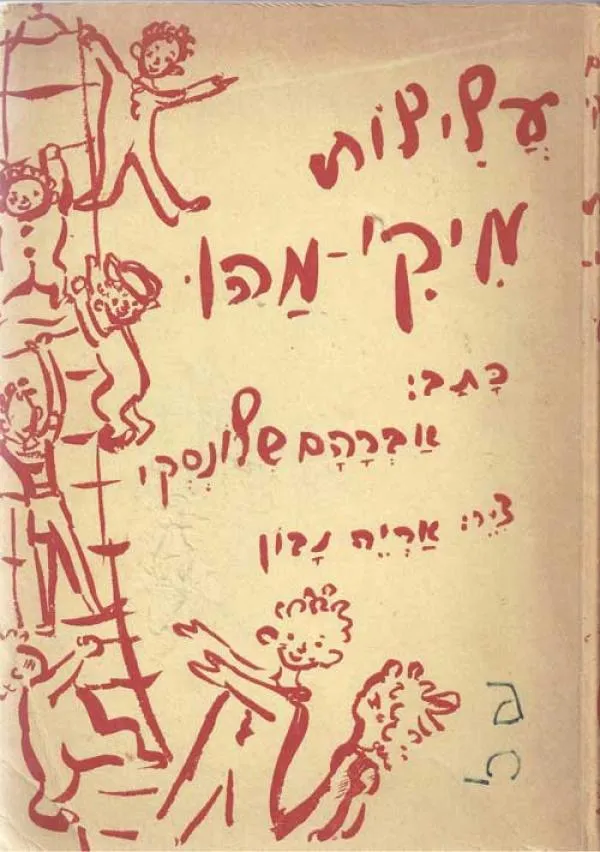 עֲלִילוֹת
מִיקִי־מַהוּ
כָּתַב:
אַבְרָהָם שְׁלוֹנְסְקִי
צִיֵּר: אַרְיֵה נָבוֹן